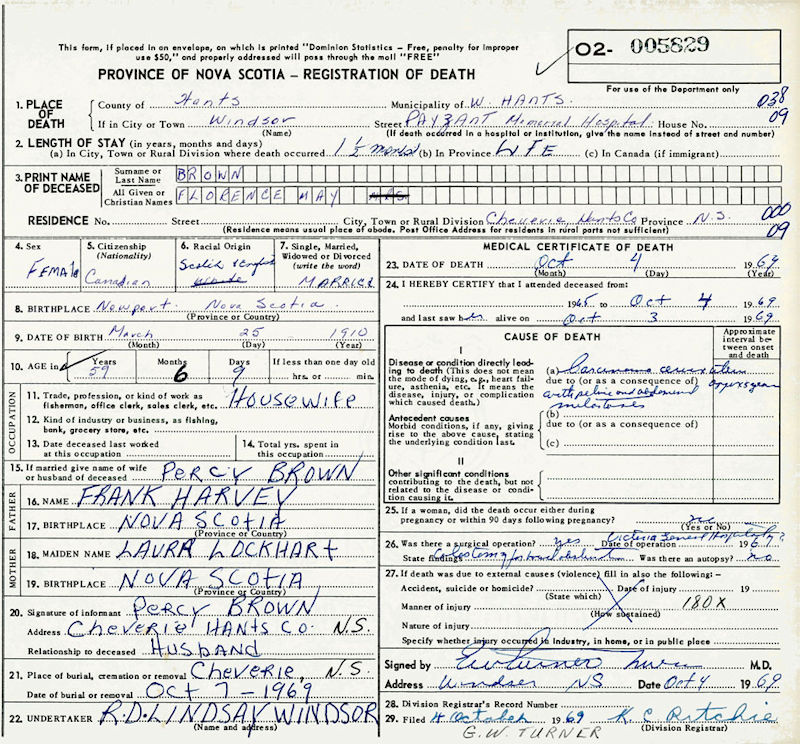 This form, if placed in an envelope, on which is printed "Dominion Statistics – Free, penalty for improper
use $50," and properly addressed will pass through the mail "FREE"
PROVINCE OF NOVA SCOTIA – REGISTRATION OF DEATH
O2- 005829
For use of the Department only
1. PLACE OF DEATH
County of Hants Municipality of W. HANTS. 038
If in City or Town Windsor Street PAYZANT Memorial Hospital House No. 09
(Name) (If death occurred in a hospital or institution, give the name instead of street and number)
2. LENGTH OF STAY (in years, months and days)
(a) In City, Town or Rural Division where death occurred 1 1/2 (b) In Province LIFE (c) In Canada (if immigrant)
3. PRINT NAME OF DECEASED
Surname or Last Name BROWN
All Given or Christian Names FLORENCE MAY MRS.
RESIDENCE No. Street City, Town or Rural Division Cheverie Hants Co Province N.S. 000
(Residence means usual place of abode. Post Office Address for residents in rural parts not sufficient) 09
4. Sex FEMALE
5. Citizenship (Nationality) Canadian
6. Racial Origin Scotch & English
7. Single, Married, Widowed or Divorced (write the word) MARRIED
8. BIRTHPLACE Newport. Nova Scotia.
(Province or Country)
9. DATE OF BIRTH March 25 1910
(Month) (Day) (Year)
10. AGE in Years 59 Months 6 Days 9 If less than one day old
hrs. or min.
OCCUPATION
11. Trade, profession, or kind of work as
fisherman, office clerk, sales clerk, etc. HOUSEWIFE
12. Kind of industry or business, as fishing,
bank, grocery store, etc.
13. Date deceased last worked
at this occupation
14. Total yrs. spent in
this occupation
15. If married give name of wife
or husband of deceased PERCY BROWN
FATHER
16. NAME FRANK HARVEY
17. BIRTHPLACE NOVA SCOTIA
(Province or Country)
MOTHER
18. MAIDEN NAME LAURA LOCKHART
19. BIRTHPLACE NOVA SCOTIA
(Province or Country)
20. Signature of informant PERCY BROWN
Address CHEVERIE HANTS CO. N.S.
Relationship to deceased HUSBAND
21. Place of burial, cremation or removal CHEVERIE, N.S.
Date of burial or removal OCT 7-1969
22. UNDERTAKER R.D. LINDSAY WINDSOR
(Name and address)
MEDICAL CERTIFICATE OF DEATH
23. DATE OF DEATH Oct 4 1969
(Month) (Day) (Year)
24. I HEREBY CERTIFY that I attended deceased from:
1965 to Oct 4 1969
and last saw her alive on Oct 3 1969
CAUSE OF DEATH
Approximate interval between onset and death
I
Disease or condition directly leading to death (This does not mean
the mode of dying, e.g., heart failure, asthenia, etc. It means the
disease, injury, or complication
which caused death.)
(a) Carcinoma cervix uteri
due to (or as a consequence of)
with pelvic and abdominal
metastases
Antecedent causes
Morbid conditions, if any, giving
rise to the above cause, stating
the underlying condition last.
(b)
due to (or as a consequence of)
(c)
II
Other significant conditions
contributing to the death, but not
related to the disease or condition causing it.
25. If a woman, did the death occur either during
pregnancy or within 90 days following pregnancy? no
(Yes or No)
26. Was there a surgical operation? yes Date of operation Victoria General Hospital 196
State findings Colostomy for bowel obstruction Was there an autopsy? no
27. If death was due to external causes (violence) fill in also the following –
Accident, suicide or homicide? Date of injury 19
(State which)
Manner of injury 180X
(How sustained)
Nature of injury
Specify whether injury occurred in industry, in home, or in public place
Signed by Turner M.D.
Address Windsor NS Date Oct 4 1969
28. Division Registrar's Record Number
29. Filed 4 October 1969 K C Ritchie
G.W. TURNER (Division Registrar)